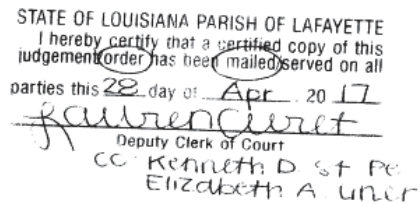 STATE OF LOUISIANA PARISH OF LAFAYETTE
I hereby certify that a certified copy of this
judgement/order has been mailed/served on all
parties this 28 day of Apr 20 17
Lauren Curet
Deputy Clerk of Court
CC Kenneth D. St Pe
Elizabeth A.